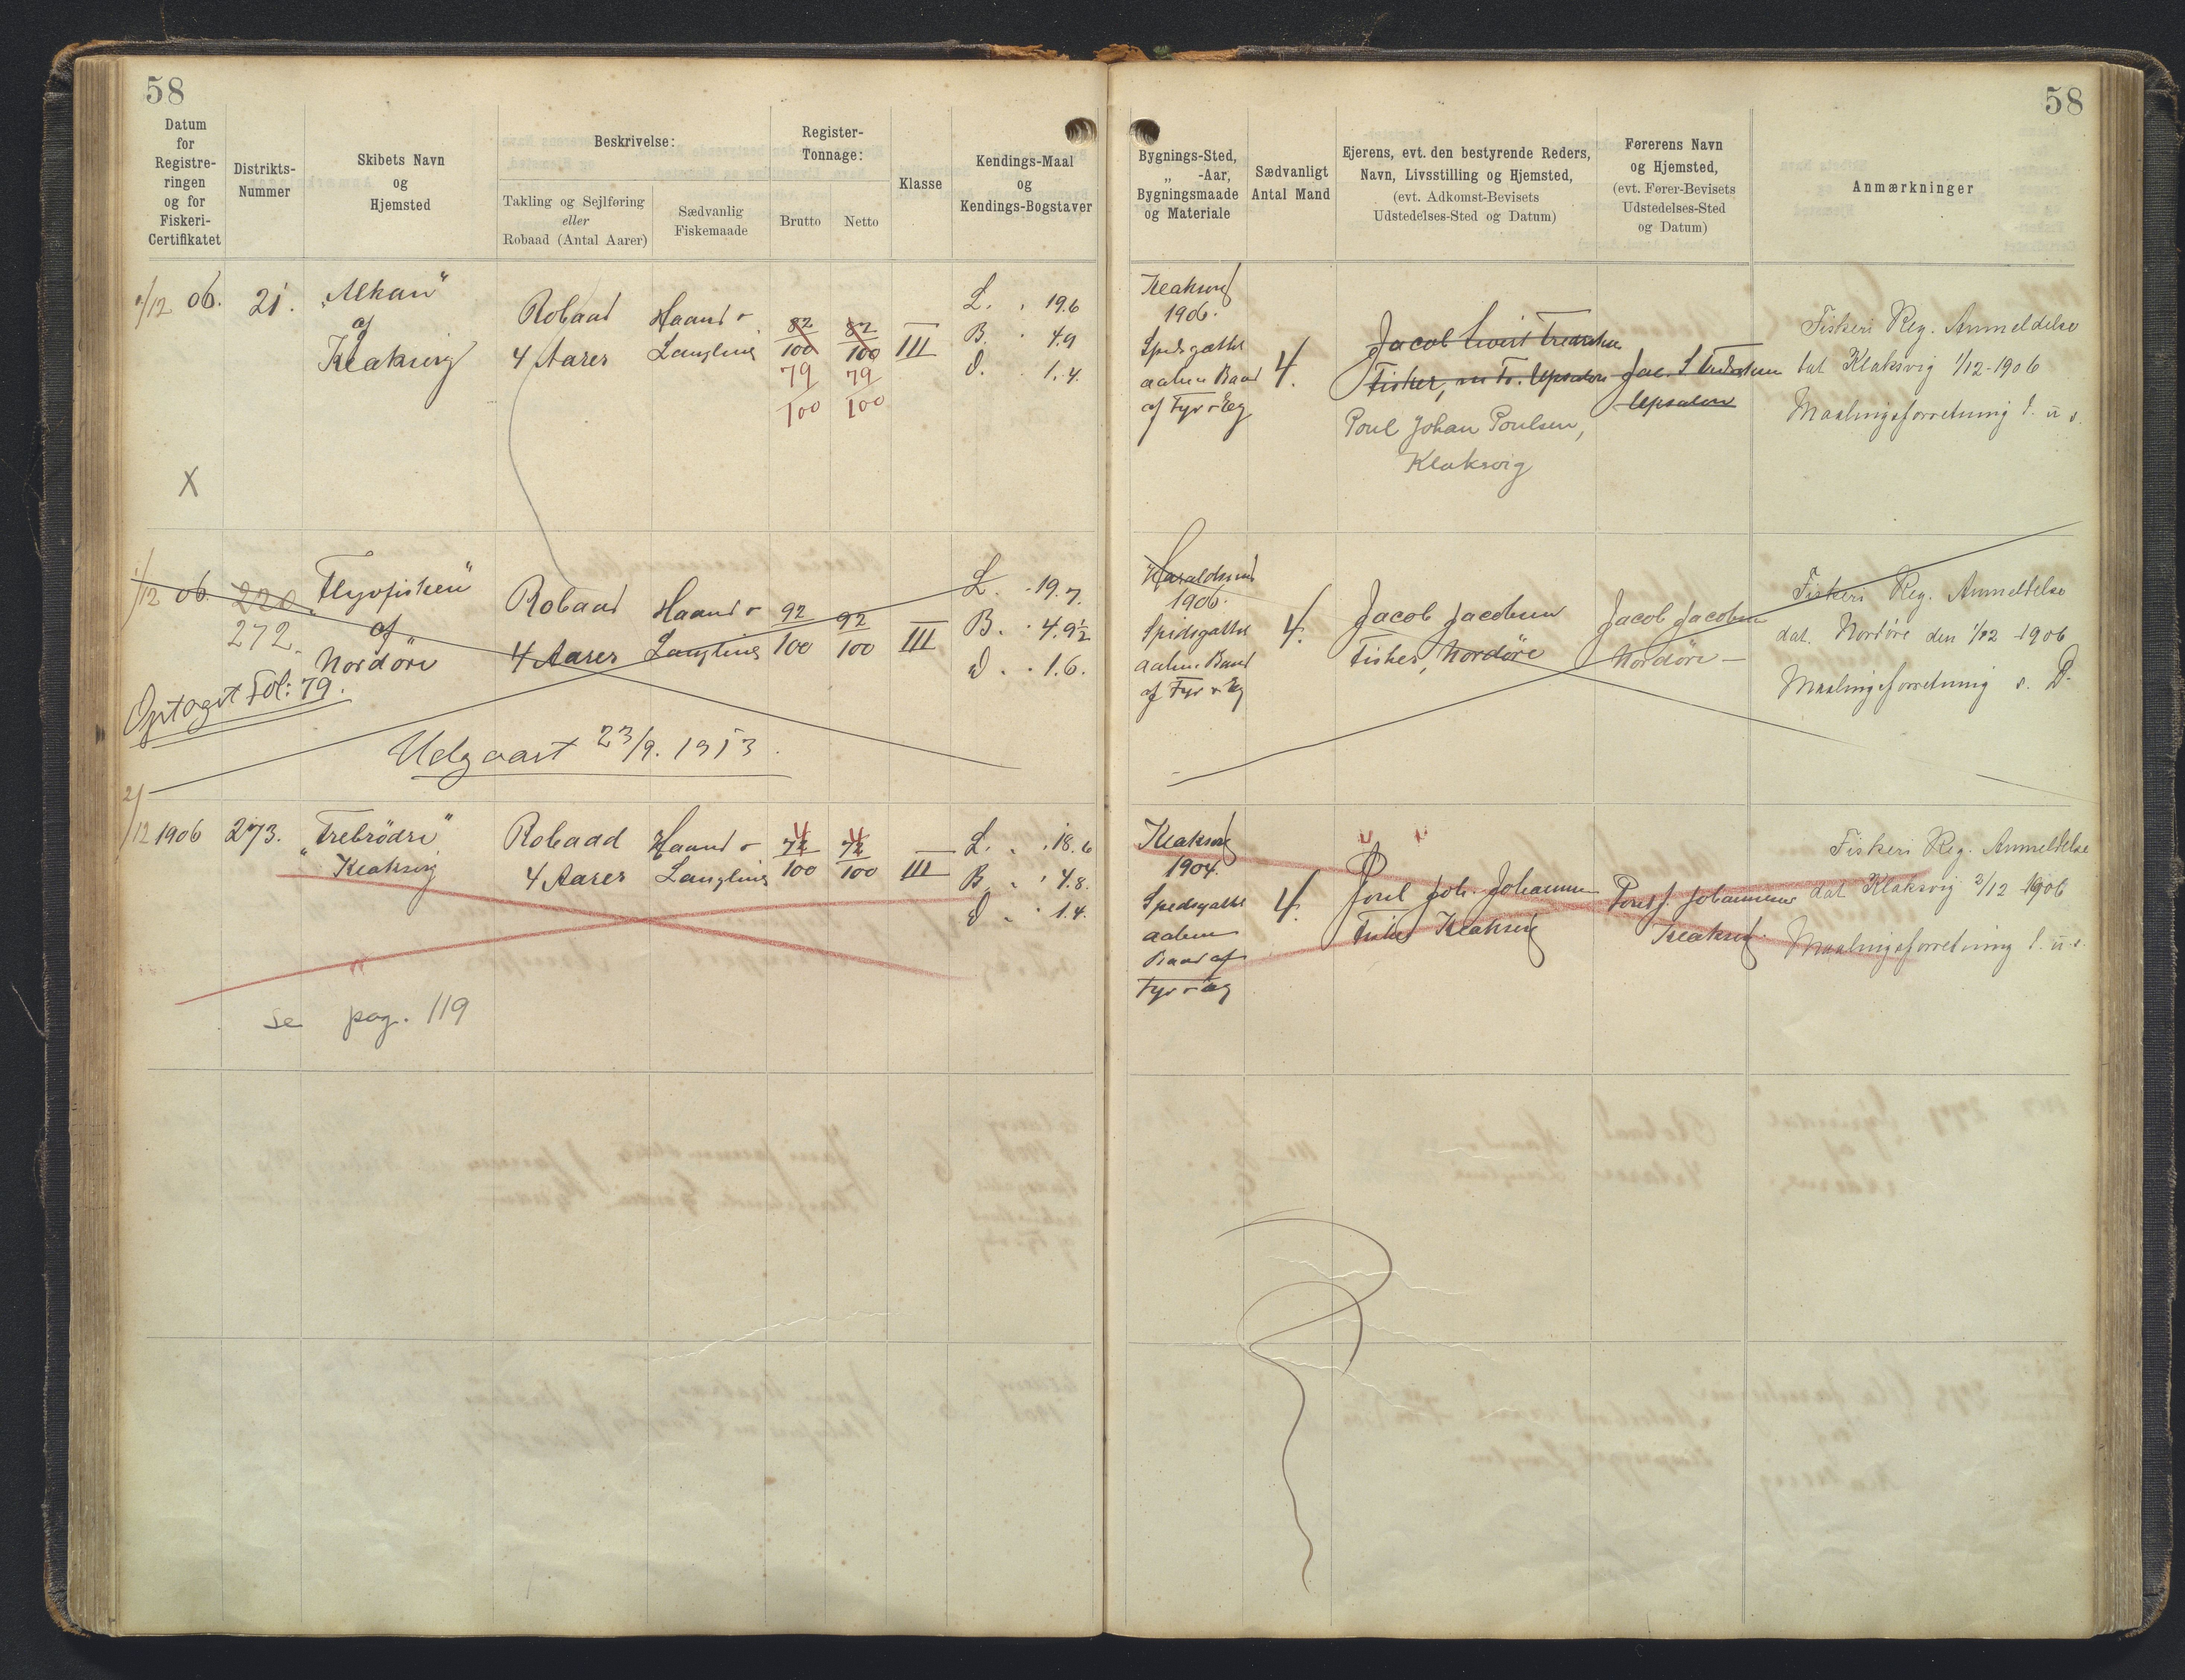 58
58
Datum
for
Registre-
ringen
og for
Fiskeri-
Certifikatet
Distrikts-
Nummer
Skibets Navn
og
Hjemsted
Beskrivelse:
Takling og Sejlføring
eller
Robaad (Antal Aarer)
Sædvanlig
Fiskemaade
Register-
Tonnage:
Brutto
Netto
Klasse
Kendings-Maal
og
Kendings-Bogstaver
Bygnings-Sted,
„ -Aar,
Bygningsmaade
og Materiale
Sædvanligt
Antal Mand
Ejerens, evt. den bestyrende Reders,
Navn, Livsstilling og Hjemsted,
(evt. Adkomst-Bevisets
Udstedelses-Sted og Datum)
Førerens Navn
og Hjemsted,
(evt. Fører-Bevisets
Udstedelses-Sted
og Datum)
Anmærkninger
1/12 06.
21.
of
Klaksvig
Robaad
4 Aarer
Haand
Langline
82/100
82/100
79/100
79/100
III
L. . 19.6
B. . 4.9
D. . 1.4.
Klaksvig
1906.
Spidsgattet
aaben Baad
af Fyr & Eg
4.
Jacob
Fisker,
Poul Johan Poulsen,
Klaksvig
Jac.
Fiskeri Reg. Anmeldelse
dat Klaksvig 1/12-1906
Maalingsforretning
X
1/12 06.
220
272.
"Flyvfisken"
of
Nordöre
Optaget Fol: 79.
Robaad
4 Aarer
Haand
Langline
92/100
92/100
III
L. . 19.7.
B. . 4.9½
D. . 1.6.
Udgaaet 23/9. 1913.
Haraldssund
1906.
Spidsgattet
aaben Baad
af Fyr & Eg
4.
Jacob Jacobsen
Fisker, Nordöre
Jacob Jacobsen
Nordöre
Fiskeri Reg. Anmeldelse
dat. Nordöre den 1/12 -1906
Maalingsforretning s. D.
2/12 1906
273.
"Trebrödre"
Klaksvig
Robaad
4 Aarer
Haand
Langline
III
L. . 18.6
B. . 4.8.
D. . 1.4.
se pag. 119
Klaksvig
1904.
Spidsgattet
aaben
Baad af
Fyr & Eg
4.
Poul Joh. Johannesen
Fisker Klaksvig
Poul J. Johannesen
Klaksvig.
Fiskeri Reg. Anmeldelse
dat Klaksvig 3/12 1906
Maalingsforretning